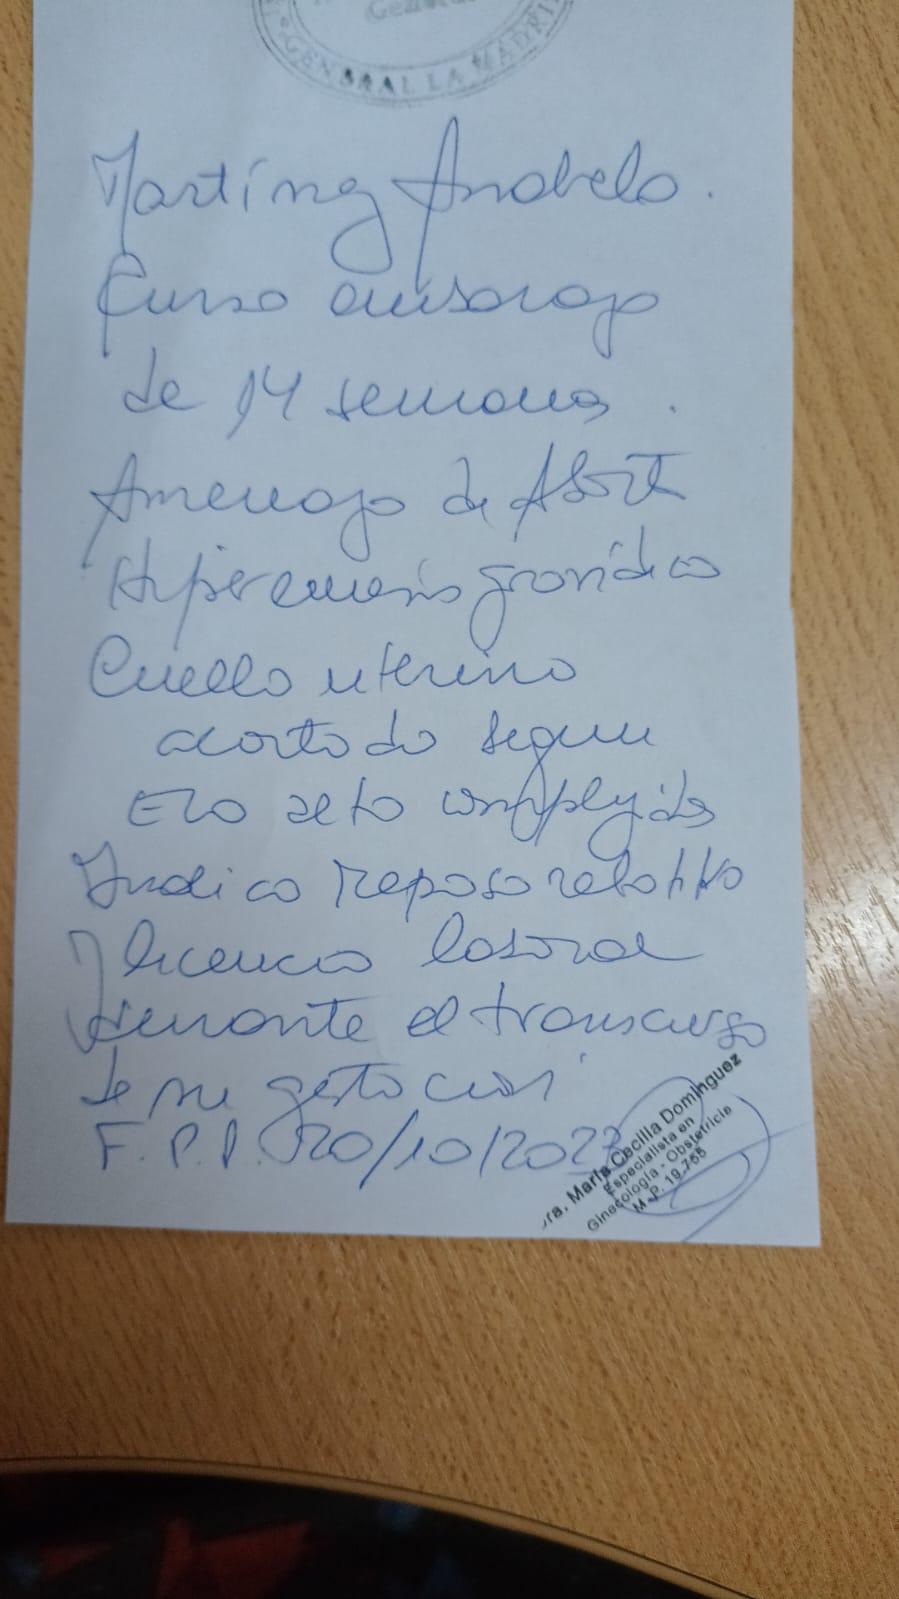 GENERAL LA MADRID
Martínez Anabela.
Cursa embarazo
de 14 semanas.
Amenaza de Aborto
Hiperemesis gravídica
Cuello uterino
acortado segun
Eco alta complejidad
Indico reposo relativo
y licencia laboral
durante el transcurso
de su gestación
F.P.P. 20/10/202
Dra. María Cecilia Dominguez
Especialista en
Ginecología - Obstetricia
M.P. 19.755